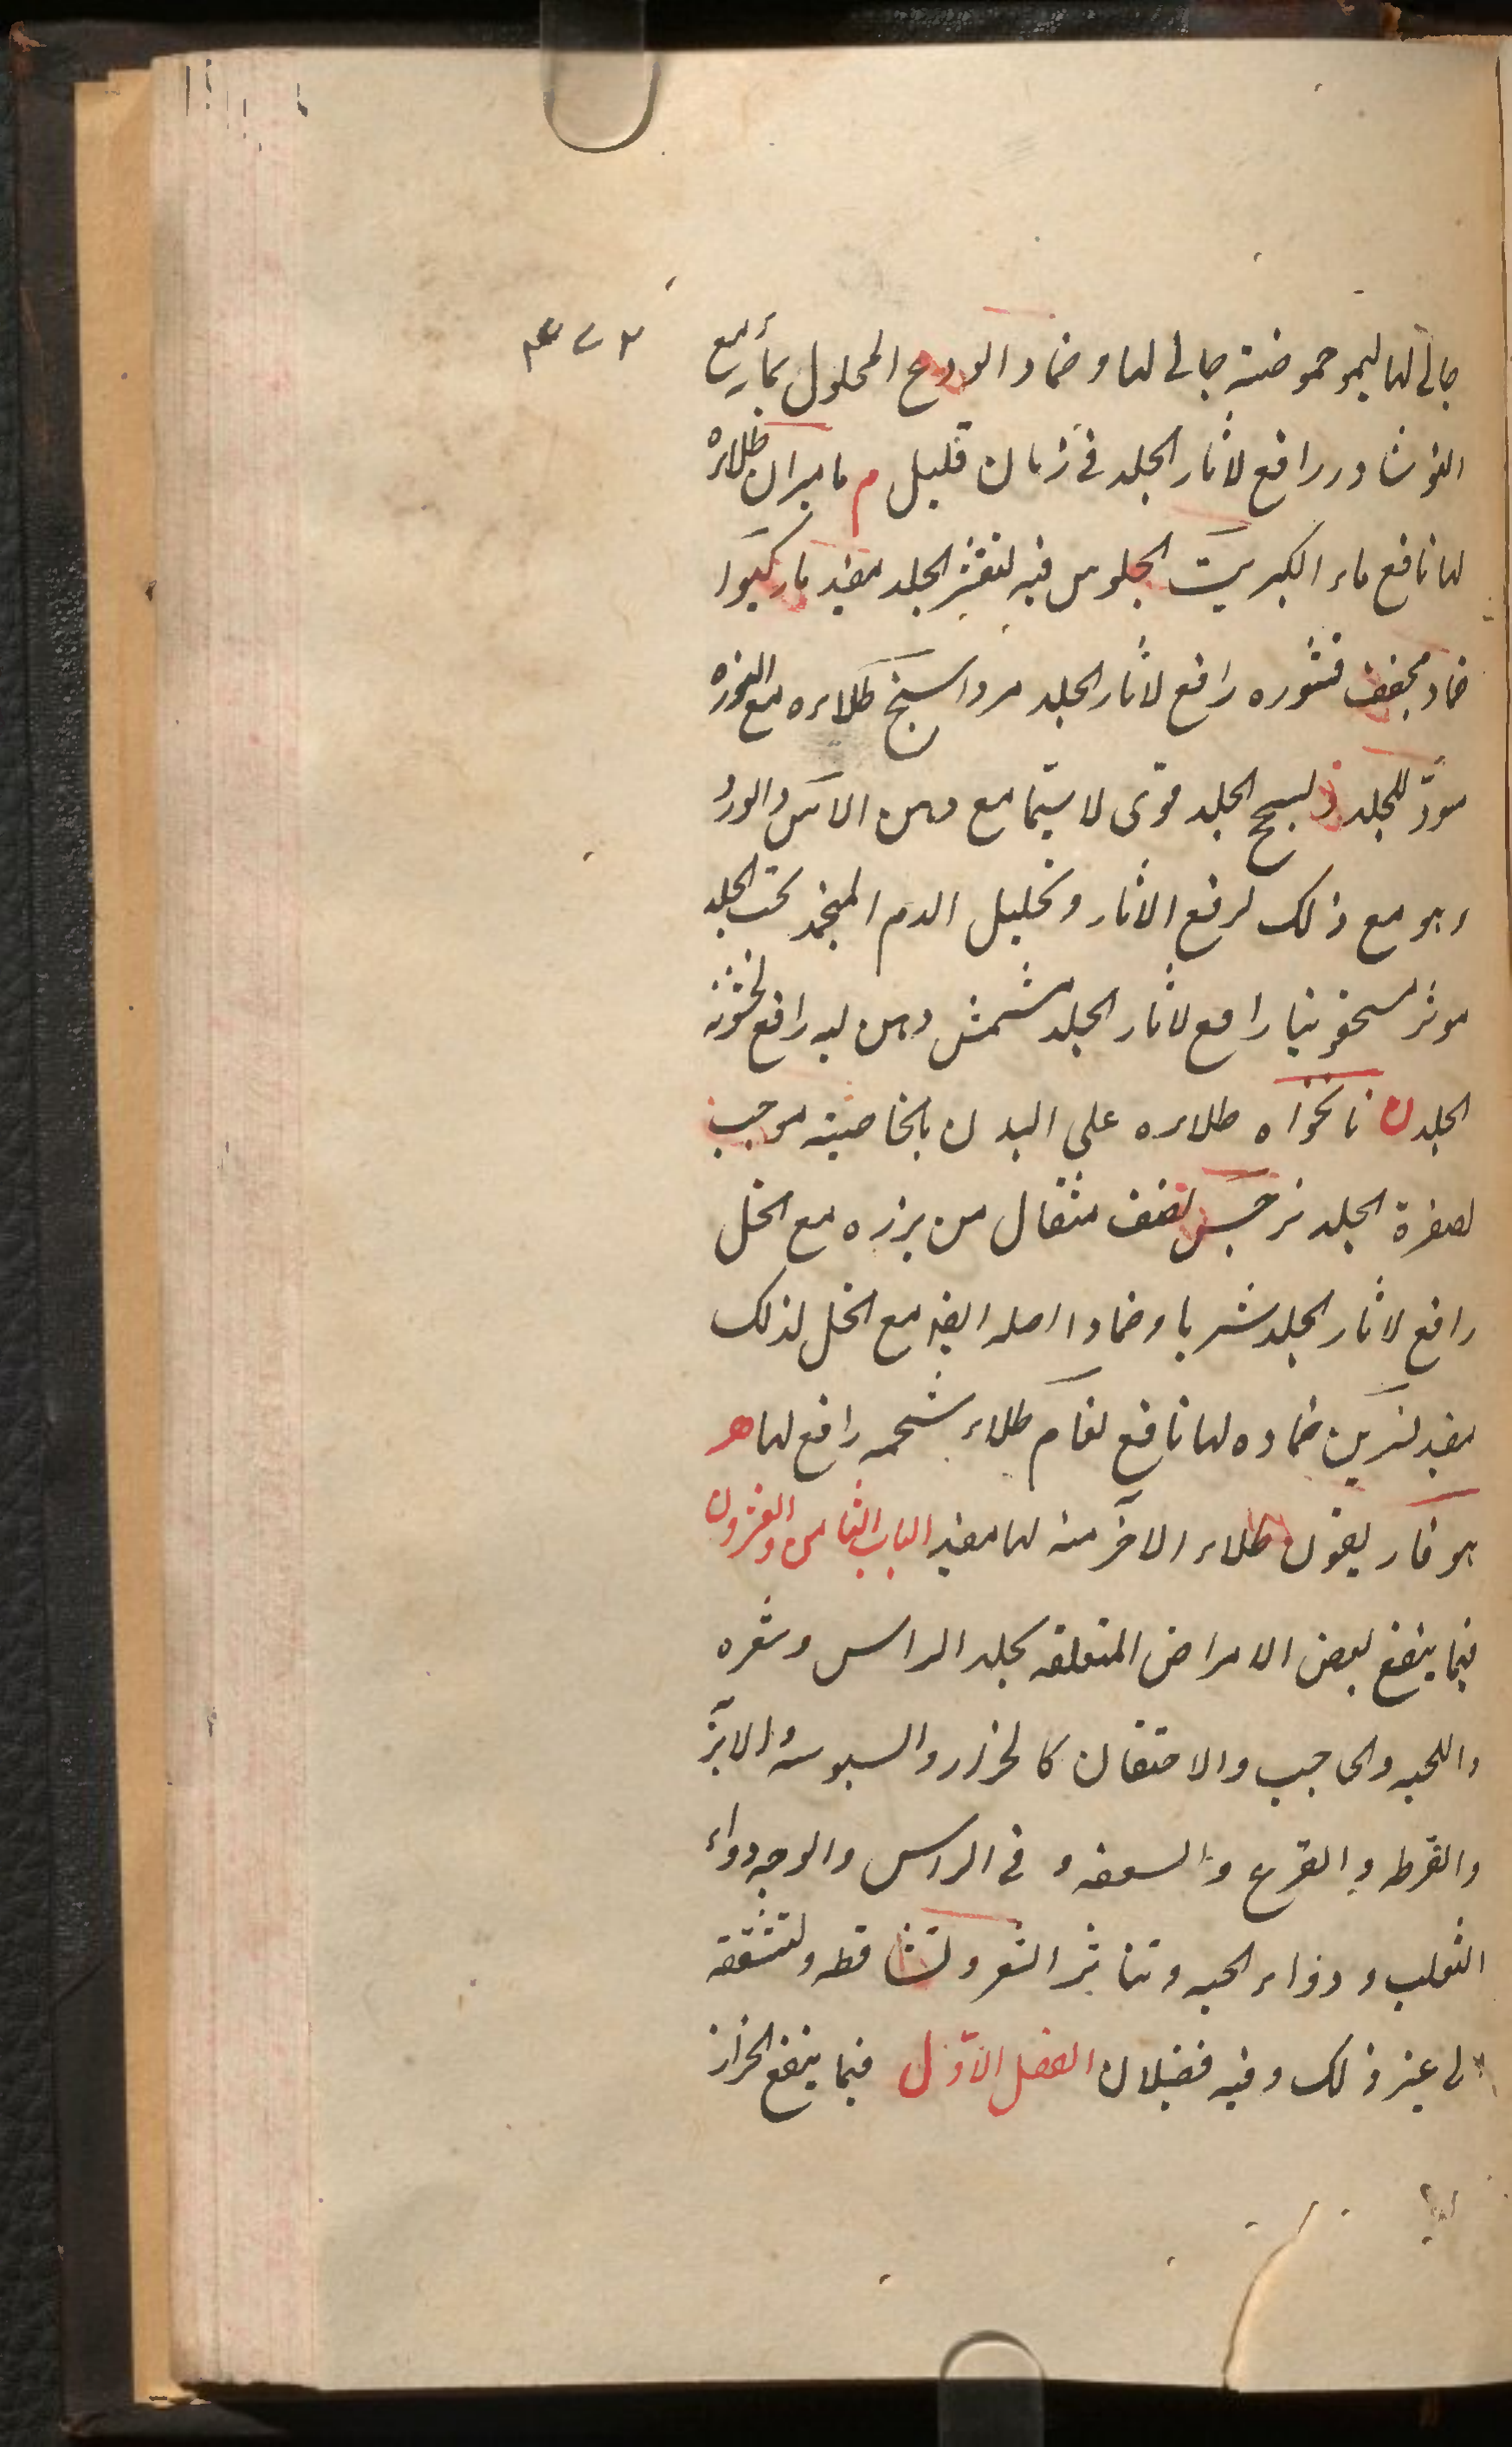 جالی لها لیمو حموضته جالی لها و ضماد الودع المحلول بماء مع
النوشادر رافع لاثار الجلد فی زمان قلیل م مامیران طلاءه
لها نافع ماء الکبریت الجلوس فیه لتقشر الجلد مفید مارکیوا
ضماد مجفف قشوره رافع لاثار الجلد مرداسنج طلاءه مع النوره
مسوّد للجلد و لسحج الجلد قوی لا سیّما مع دهن الآس والورد
وهو مع ذلک لرفع الاثار و تحلیل الدم المنجمد تحت الجلد
موثر مسحقونیا رافع لاثار الجلد مشمش دهن لبه رافع لخشونة
الجلد ن نانخواه طلاءه علی البدن بالخاصیته موجب
لصفرة الجلد نرجس نصف مثقال من بزره مع الخل
رافع لاثار الجلد شربا و ضمادا اصله ایضا مع الخل لذلک
مفید نسرین ضماده لها نافع نعام طلاء شحمه رافع لها ه
هوفاریقون طلاء الاخر منه لها مفید الباب الثامن والعشرون
فیما ینفع لبعض الامراض المتعلقه بجلد الراس و شعره
واللحیه والحاجب والاحتقان کالحزاز والسبوسه والابرّ
والقرطه والقرع والسعفه و فی الراس والوجه و داء
الثعلب و داء الحیه و تناثر الشعر و تساقطه و تشققه
الی غیر ذلک و فیه فصلان الفصل الاوّل فیما ینفع الحزاز